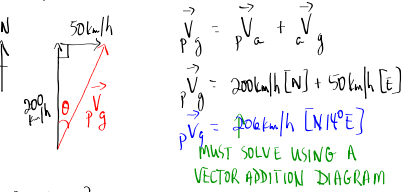 N
50km/h
200
km/h
θ
pV⃗g
pV⃗g = pV⃗a + aV⃗g
pV⃗g = 200km/h [N] + 50km/h [E]
pV⃗g = 206km/h [N14°E]
MUST SOLVE USING A
VECTOR ADDITION DIAGRAM